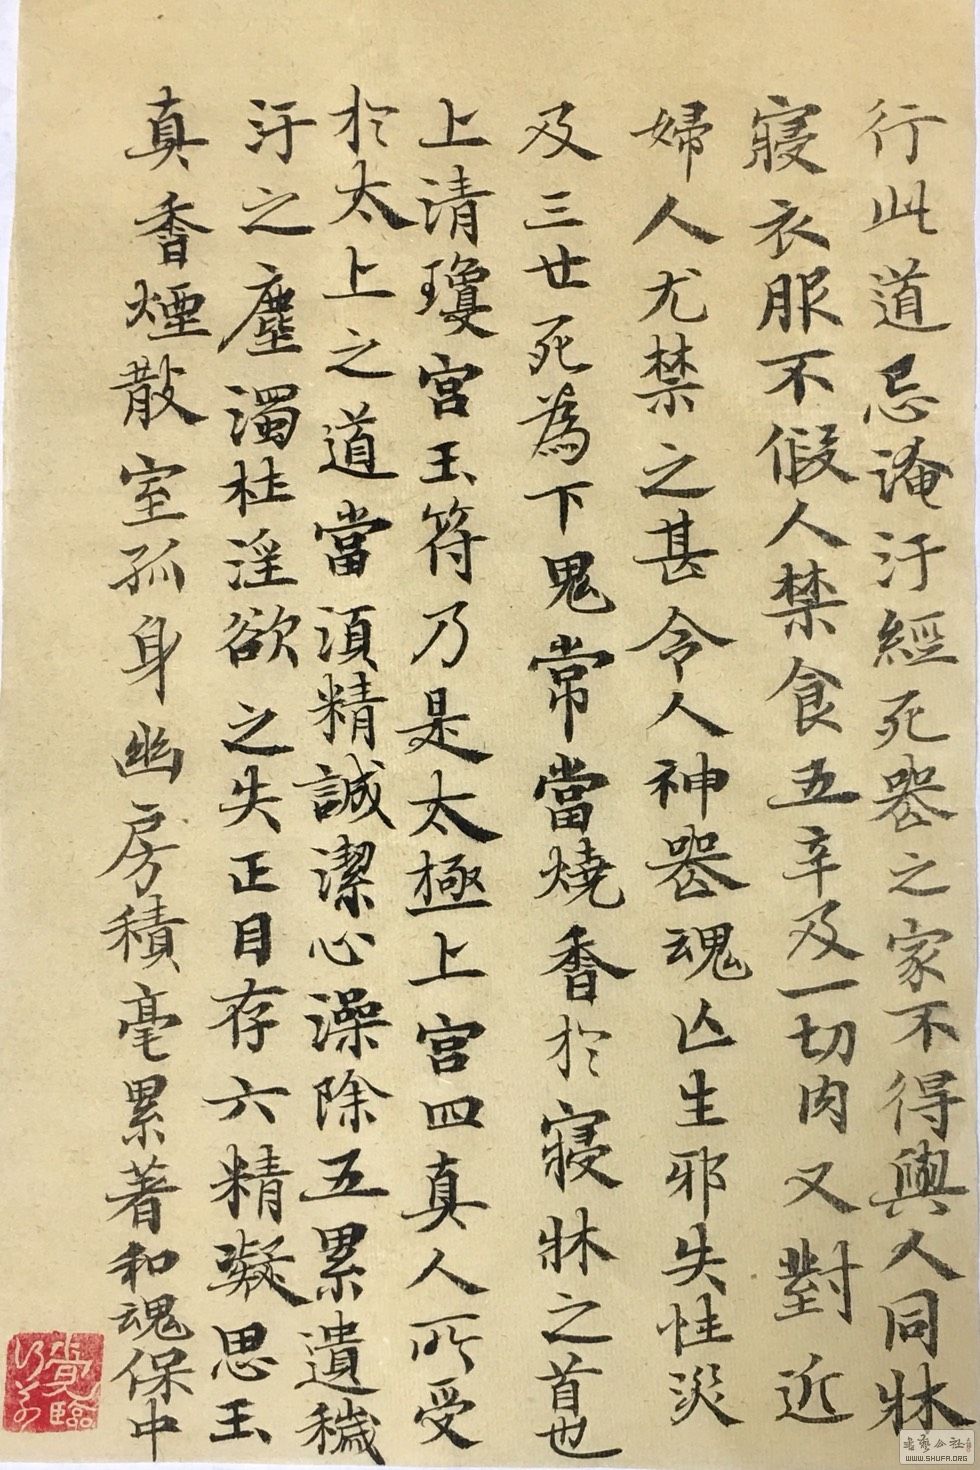 行此道忌淹汙經死器之家不得與人同牀
寢衣服不假人禁食五辛及一切肉又對近
婦人尤禁之甚令人神器魂亾生邪失性災
及三世死為下鬼常當燒香於寢牀之首也
上清瓊宮玉符乃是太極上宮四真人所受
於太上之道當須精誠潔心澡除五累遺穢
汙之塵濁杜淫欲之失正目存六精凝思玉
真香煙散室孤身幽房積毫累著和魂保中
WWW.SHUFA.ORG